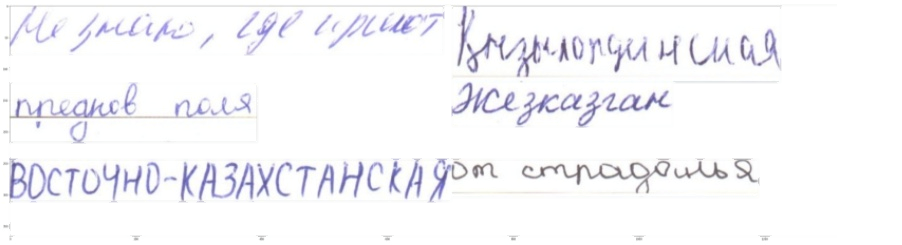 Не знаю, где приют
Кызылординская
предков поля
Жезказган
ВОСТОЧНО-КАЗАХСТАНСКАЯ
от страданья